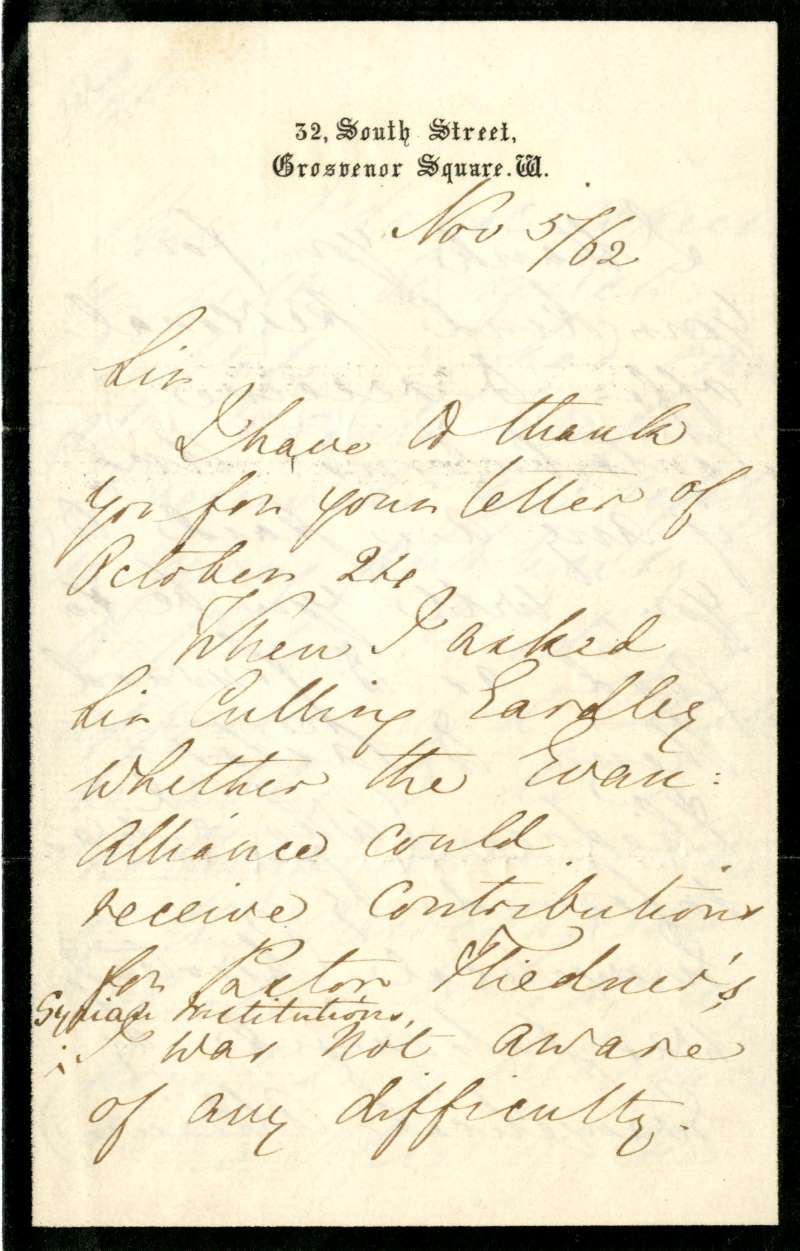 32, South Street,
Grosvenor Square. W.
Nov 5/62
Sir
I have to thank
you for your letter of
October 24.
When I asked
Sir Culling Eardley
whether the Evan:
Alliance could
receive contributions
for Pastor Fliedner's
Syrian Institutions,
I was not aware
of any difficulty.